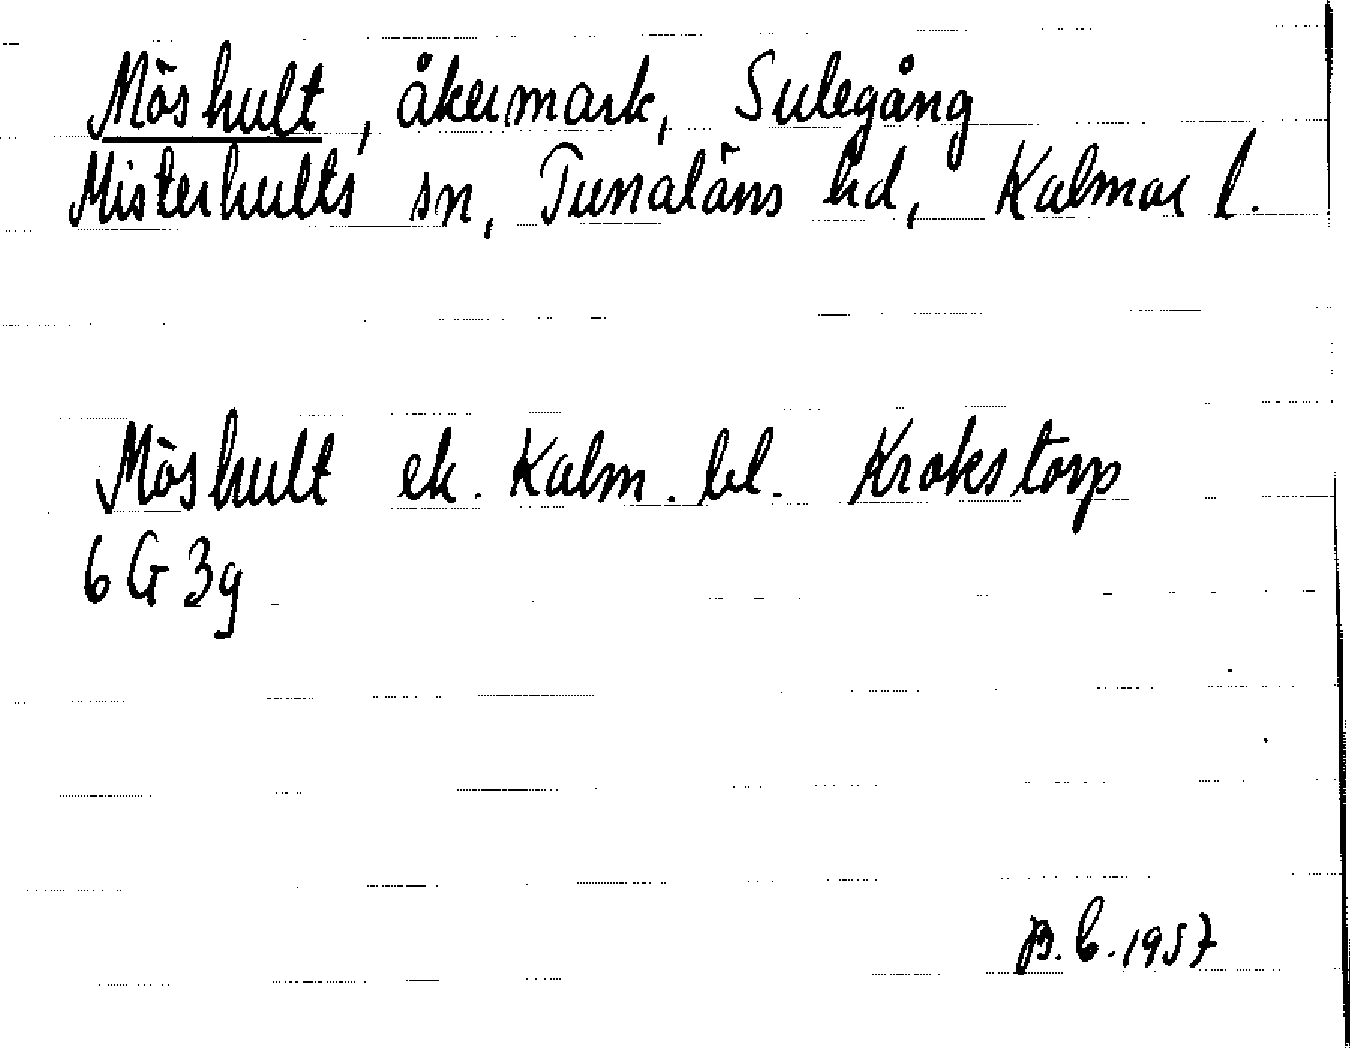 Möshult, åkermark, Sulegång
Misterhults sn, Tunaläns hd, Kalmar l.
Möshult ek. Kalm. bl. Krokstorp
6 G 3g
B. C. 1957